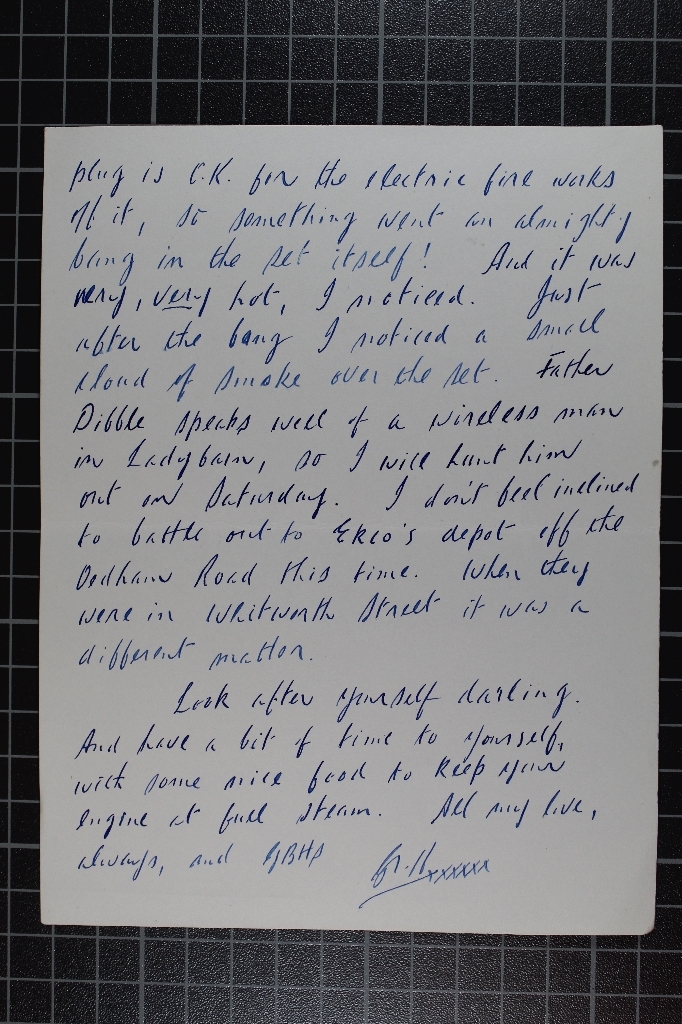 plug is O.K. for the electric fire works
off it, so something went an almighty
bang in the set itself! And it was
very, very hot, I noticed. Just
after the bang I noticed a small
cloud of smoke over the set. Father
Dibble speaks well of a wireless man
in Ladybarn, so I will hunt him
out on Saturday. I don't feel inclined
to battle out to Ekco's depot off the
Oldham Road this time. When they
were in Whitworth Street it was a
different matter.
Look after yourself darling.
And have a bit of time to yourself,
with some nice food to keep your
engine at full steam. All my love,
always, and GBHS
xxxxxx